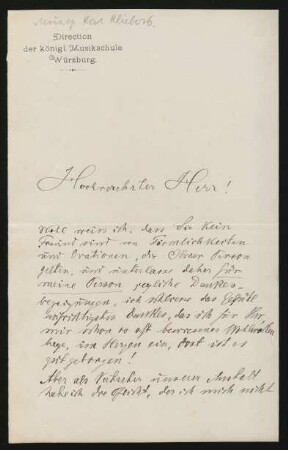 Direction
der königl. Musikschule
Würzburg.
Hochverehrter Herr!
Wohl weiss ich, dass Sie kein
Freund sind von Förmlichkeiten
und Ovationen, die Ihrer Person
gelten, und unterlasse daher für
meine Person jegliche Dankes-
bezeigungen, ich schliesse das Gefühl
aufrichtigsten Dankes, das ich für Ihr
mir schon so oft bewiesenes Wohlwollen
hege, im Herzen ein, dort ist es
gut geborgen!
Aber als Vertreter unserer Anstalt
habe ich die Pflicht, das ich mich nicht